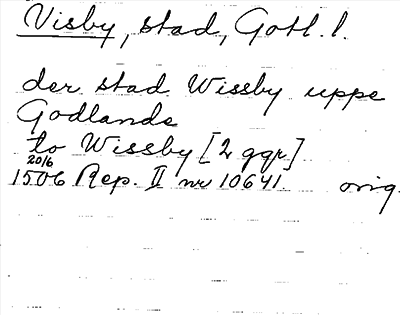 Visby, stad, Gotl. l.
der stad Wissby uppe
Godlande
to Wissby [2 ggr]
20/6
1506 Rep. II nr 10641. orig.